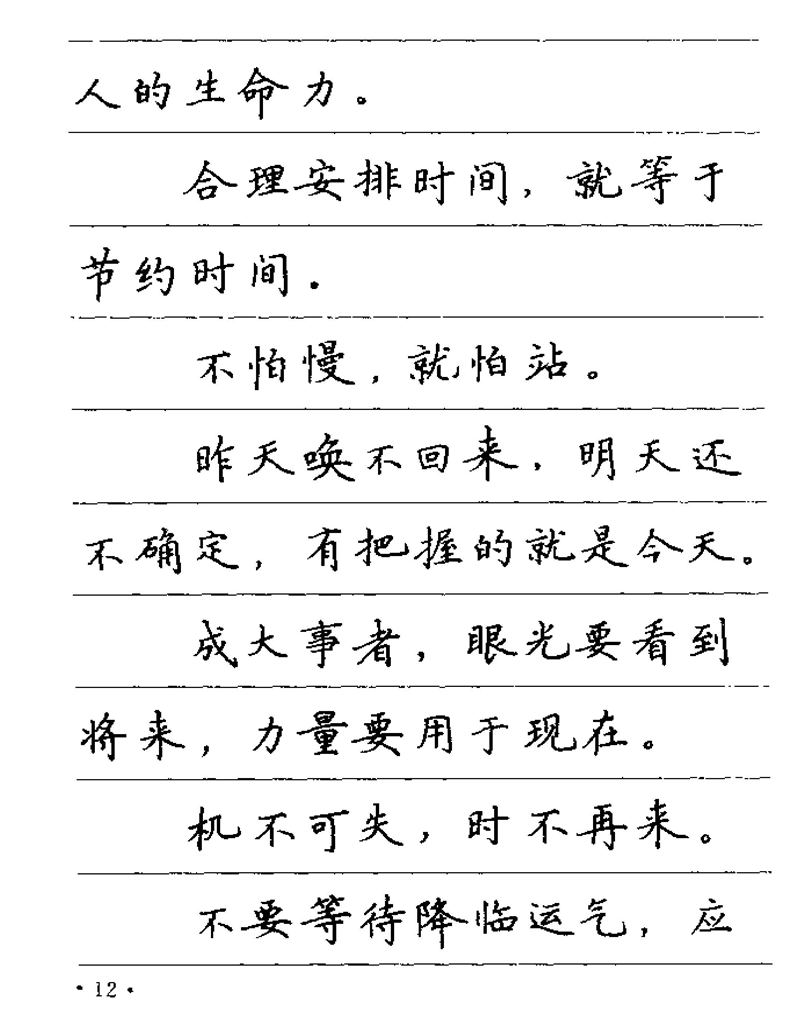 人的生命力。
合理安排时间，就等于
节约时间.
不怕慢，就怕站。
昨天唤不回来，明天还
不确定，有把握的就是今天。
成大事者，眼光要看到
将来，力量要用于现在。
机不可失，时不再来。
不要等待降临运气，应
·12·